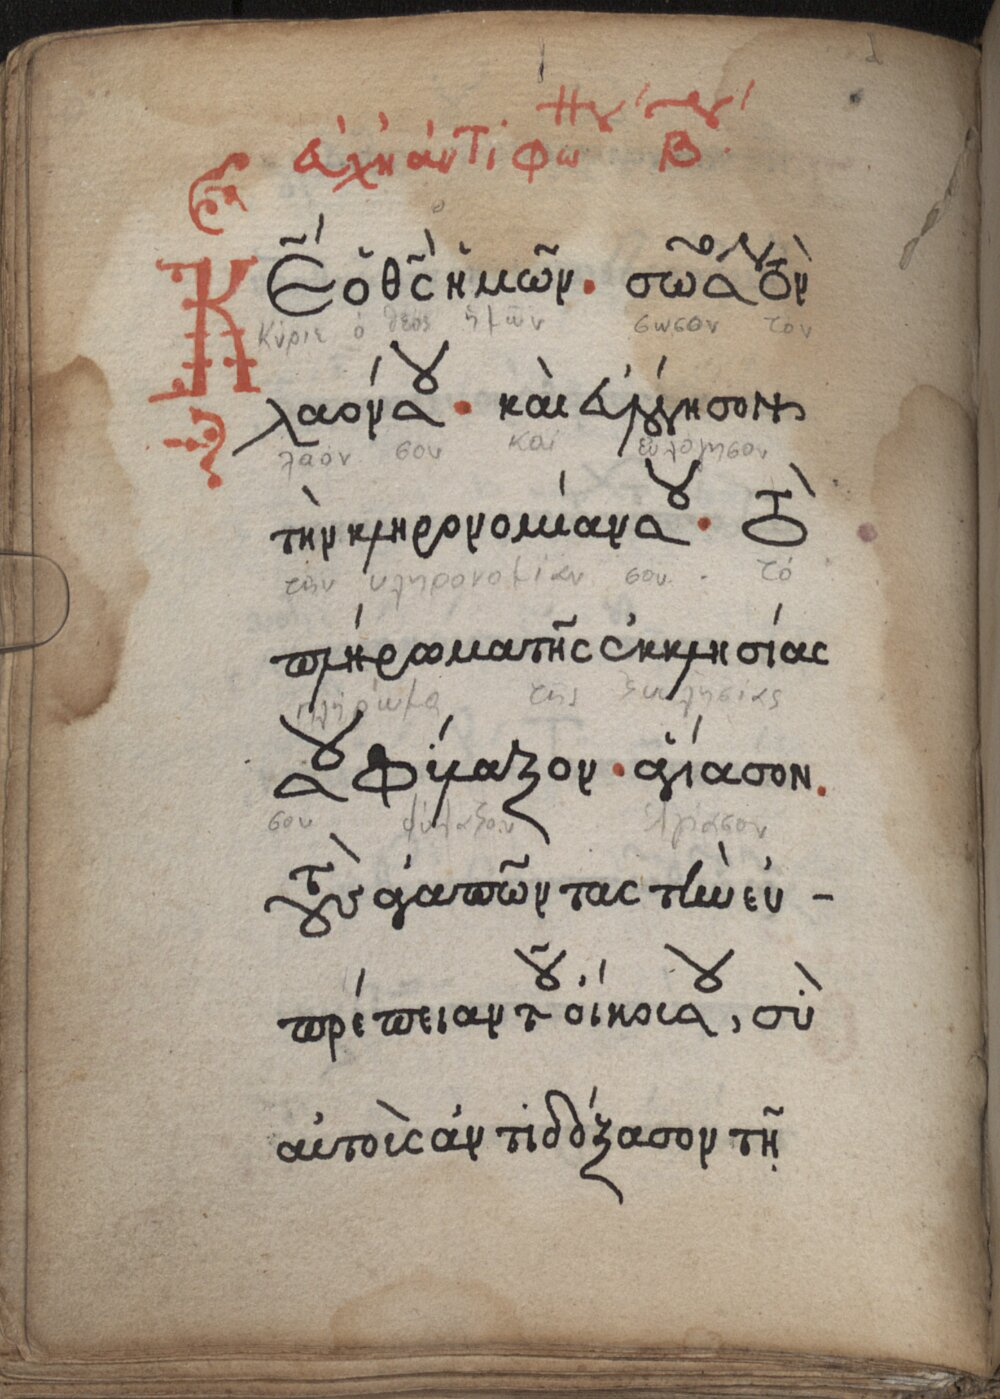 εὐχὴ ἀντιφώ Β
Κε ὁ θς ἡμῶν. σῶσον τὸν
Κύριε ὁ θεός ἡμῶν σωσον τον
λαόν σου. καὶ εὐλόγησον
λαόν σου καί εὐλόγησον
τὴν κληρονομίαν σου. τὸ
την κληρονομίαν σου. τό
πλήρωμα τῆς ἐκκλησίας
πλήρωμα τῆς ἐκκλησίας
σου φύλαξον. ἁγίασον.
σου φύλαξον ἁγίασον
τοὺς ἀγαπῶντας τὴν εὐ-
πρέπειαν τοῦ οἴκου σου, σὺ
αὐτοὺς ἀντιδόξασον τῇ